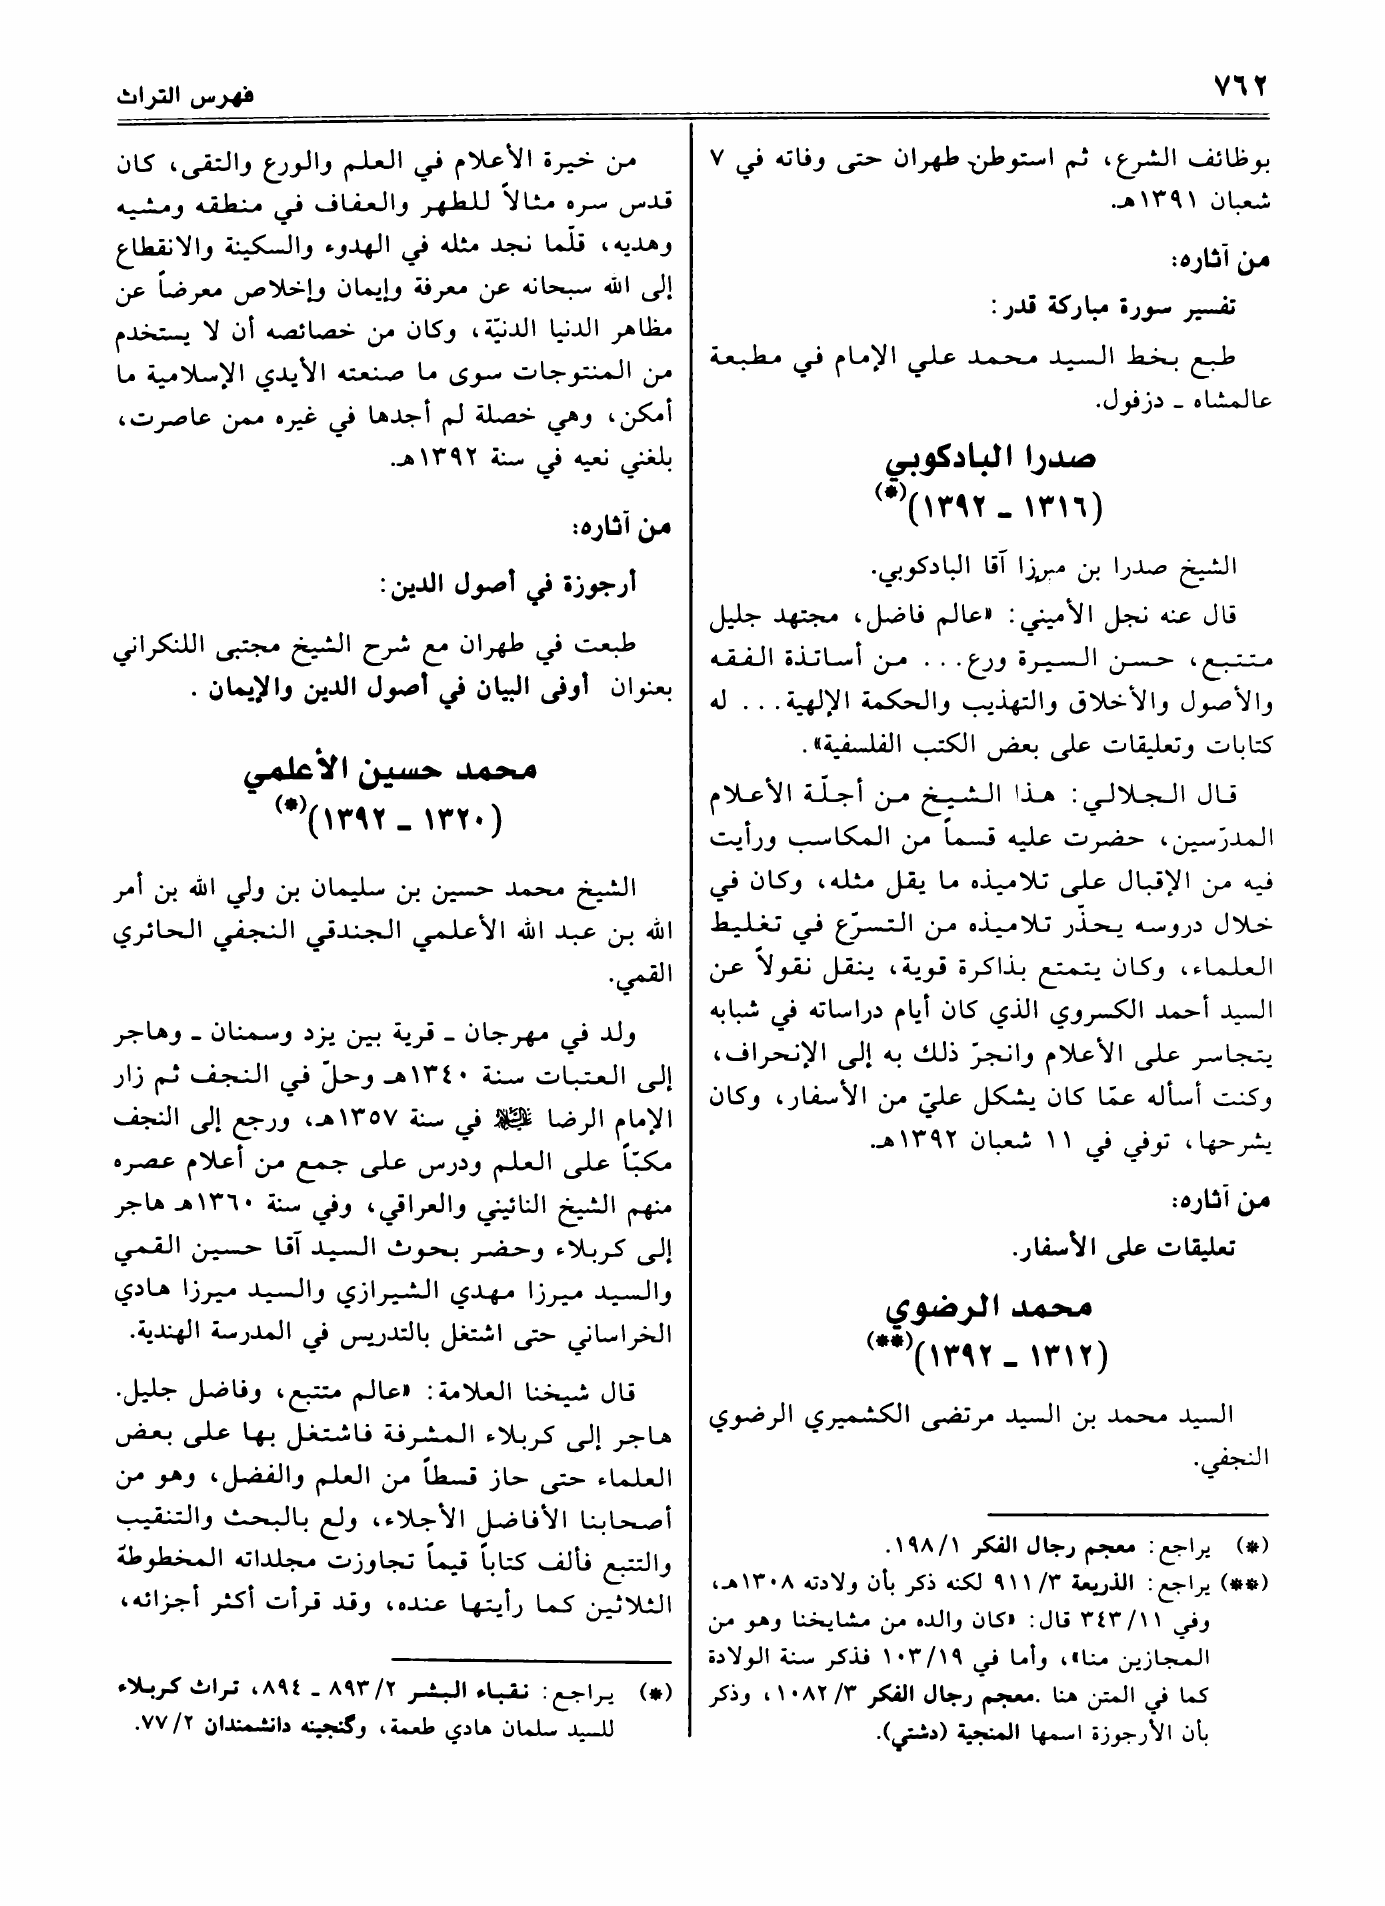 ٧٦٢
فهرس التراث
بوظائف الشرع، ثم استوطن طهران حتى وفاته في ٧
شعبان ١٣٩١هـ.
من آثاره:
تفسير سورة مباركة قدر:
طبع بخط السيد محمد علي الإمام في مطبعة
عالمشاه ـ دزفول.
صدرا البادكوبي
(١٣١٦ ـ ١٣٩٢)(*)
الشيخ صدرا بن ميرزا آقا البادكوبي.
قال عنه نجل الأميني: «عالم فاضل، مجتهد جليل
متتبع، حسن السيرة ورع... من أساتذة الفقه
والأصول والأخلاق والتهذيب والحكمة الإلهية... له
كتابات وتعليقات على بعض الكتب الفلسفية».
قال الجلالي: هذا الشيخ من أجلّة الأعلام
المدرّسين، حضرت عليه قسماً من المكاسب ورأيت
فيه من الإقبال على تلاميذه ما يقل مثله، وكان في
خلال دروسه يحذّر تلاميذه من التسرّع في تغليط
العلماء، وكان يتمتع بذاكرة قوية، ينقل نقولاً عن
السيد أحمد الكسروي الذي كان أيام دراساته في شبابه
يتجاسر على الأعلام وانجرّ ذلك به إلى الإنحراف،
وكنت أسأله عمّا كان يشكل عليّ من الأسفار، وكان
يشرحها، توفي في ١١ شعبان ١٣٩٢هـ.
من آثاره:
تعليقات على الأسفار.
محمد الرضوي
(١٣١٢ ـ ١٣٩٢)(**)
السيد محمد بن السيد مرتضى الكشميري الرضوي
النجفي.
(*) يراجع: معجم رجال الفكر ١/ ١٩٨.
(**) يراجع: الذريعة ٣/ ٩١١ لكنه ذكر بأن ولادته ١٣٠٨هـ،
وفي ١١/ ٣٤٣ قال: «كان والده من مشايخنا وهو من
المجازين منا»، وأما في ١٩/ ١٠٣ فذكر سنة الولادة
كما في المتن هنا .معجم رجال الفكر ٣/ ١٠٨٢، وذكر
بأن الأرجوزة اسمها المنجية (دشتي).
من خيرة الأعلام في العلم والورع والتقى، كان
قدس سره مثالاً للطهر والعفاف في منطقه ومشيه
وهديه، قلّما نجد مثله في الهدوء والسكينة والانقطاع
إلى الله سبحانه عن معرفة وإيمان وإخلاص معرضاً عن
مظاهر الدنيا الدنيّة، وكان من خصائصه أن لا يستخدم
من المنتوجات سوى ما صنعته الأيدي الإسلامية ما
أمكن، وهي خصلة لم أجدها في غيره ممن عاصرت،
بلغني نعيه في سنة ١٣٩٢هـ.
من آثاره:
أرجوزة في أصول الدين:
طبعت في طهران مع شرح الشيخ مجتبى اللنكراني
بعنوان أوفى البيان في أصول الدين والإيمان .
محمد حسين الأعلمي
(١٣٢٠ ـ ١٣٩٢)(*)
الشيخ محمد حسين بن سليمان بن ولي الله بن أمر
الله بن عبد الله الأعلمي الجندقي النجفي الحائري
القمي.
ولد في مهرجان ـ قرية بين يزد وسمنان ـ وهاجر
إلى العتبات سنة ١٣٤٠هـ وحلّ في النجف ثم زار
الإمام الرضا عليه السلام في سنة ١٣٥٧هـ، ورجع إلى النجف
مكبّاً على العلم ودرس على جمع من أعلام عصره
منهم الشيخ النائيني والعراقي، وفي سنة ١٣٦٠هـ هاجر
إلى كربلاء وحضر بحوث السيد آقا حسين القمي
والسيد ميرزا مهدي الشيرازي والسيد ميرزا هادي
الخراساني حتى اشتغل بالتدريس في المدرسة الهندية.
قال شيخنا العلامة: «عالم متتبع، وفاضل جليل.
هاجر إلى كربلاء المشرفة فاشتغل بها على بعض
العلماء حتى حاز قسطاً من العلم والفضل، وهو من
أصحابنا الأفاضل الأجلاء، ولع بالبحث والتنقيب
والتتبع فألف كتاباً قيماً تجاوزت مجلداته المخطوطة
الثلاثين كما رأيتها عنده، وقد قرأت أكثر أجزائه،
(*) يراجع: نقباء البشر ٢/ ٨٩٣ ـ ٨٩٤، تراث كربلاء
للسيد سلمان هادي طعمة، وگنجينه دانشمندان ٢/ ٧٧.